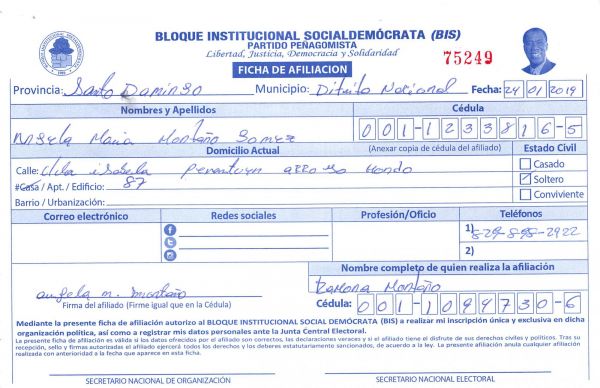 BLOQUE INSTITUCIONAL SOCIALDEMÓCRATA (BIS)
PARTIDO PEÑAGOMISTA
Libertad, Justicia, Democracia y Solidaridad
75249
FICHA DE AFILIACION
Provincia: Santo Domingo Municipio: Distrito Nacional Fecha: 24 01 2019
Nombres y Apellidos Cédula
Angela Maria Montaño Gomez 001-1233816-5
Domicilio Actual (Anexar copia de cédula del afiliado) Estado Civil
Calle: isabela arroyo Hondo Casado
#Casa / Apt. / Edificio: 87 Soltero
Barrio / Urbanización: Conviviente
Correo electrónico Redes sociales Profesión/Oficio Teléfonos
1) 829-898-2922
2)
Nombre completo de quien realiza la afiliación
Ramona Montaño
angela m. montaño
Firma del afiliado (Firme igual que en la Cédula) Cédula: 001-1099730-6
Mediante la presente ficha de afiliación autorizo al BLOQUE INSTITUCIONAL SOCIAL DEMÓCRATA (BIS) a realizar mi inscripción única y exclusiva en dicha
organización política, así como a registrar mis datos personales ante la Junta Central Electoral.
La presente ficha de afiliación es válida si los datos ofrecidos por el afiliado son correctos, las declaraciones veraces y si el afiliado tiene el disfrute de sus derechos civiles y políticos. Tras su
recepción, sello y firmas autorizadas el afiliado ejercerá todos los derechos y los deberes estatutariamente sancionados, de acuerdo a la ley. La presente afiliación anula cualquier afiliación
realizada con anterioridad a la fecha que aparece en esta ficha.
SECRETARIO NACIONAL DE ORGANIZACIÓN SECRETARIO NACIONAL ELECTORAL